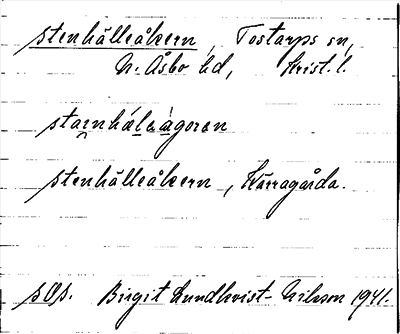 stenhälleåkern, Tostarps sn,
N. Åsbo hd, Krist. l.
stai̯nhálaàgoran
stenhälleåkern, Kärragårda.
sOp. Birgit Lundkvist-Nilsson 1941.